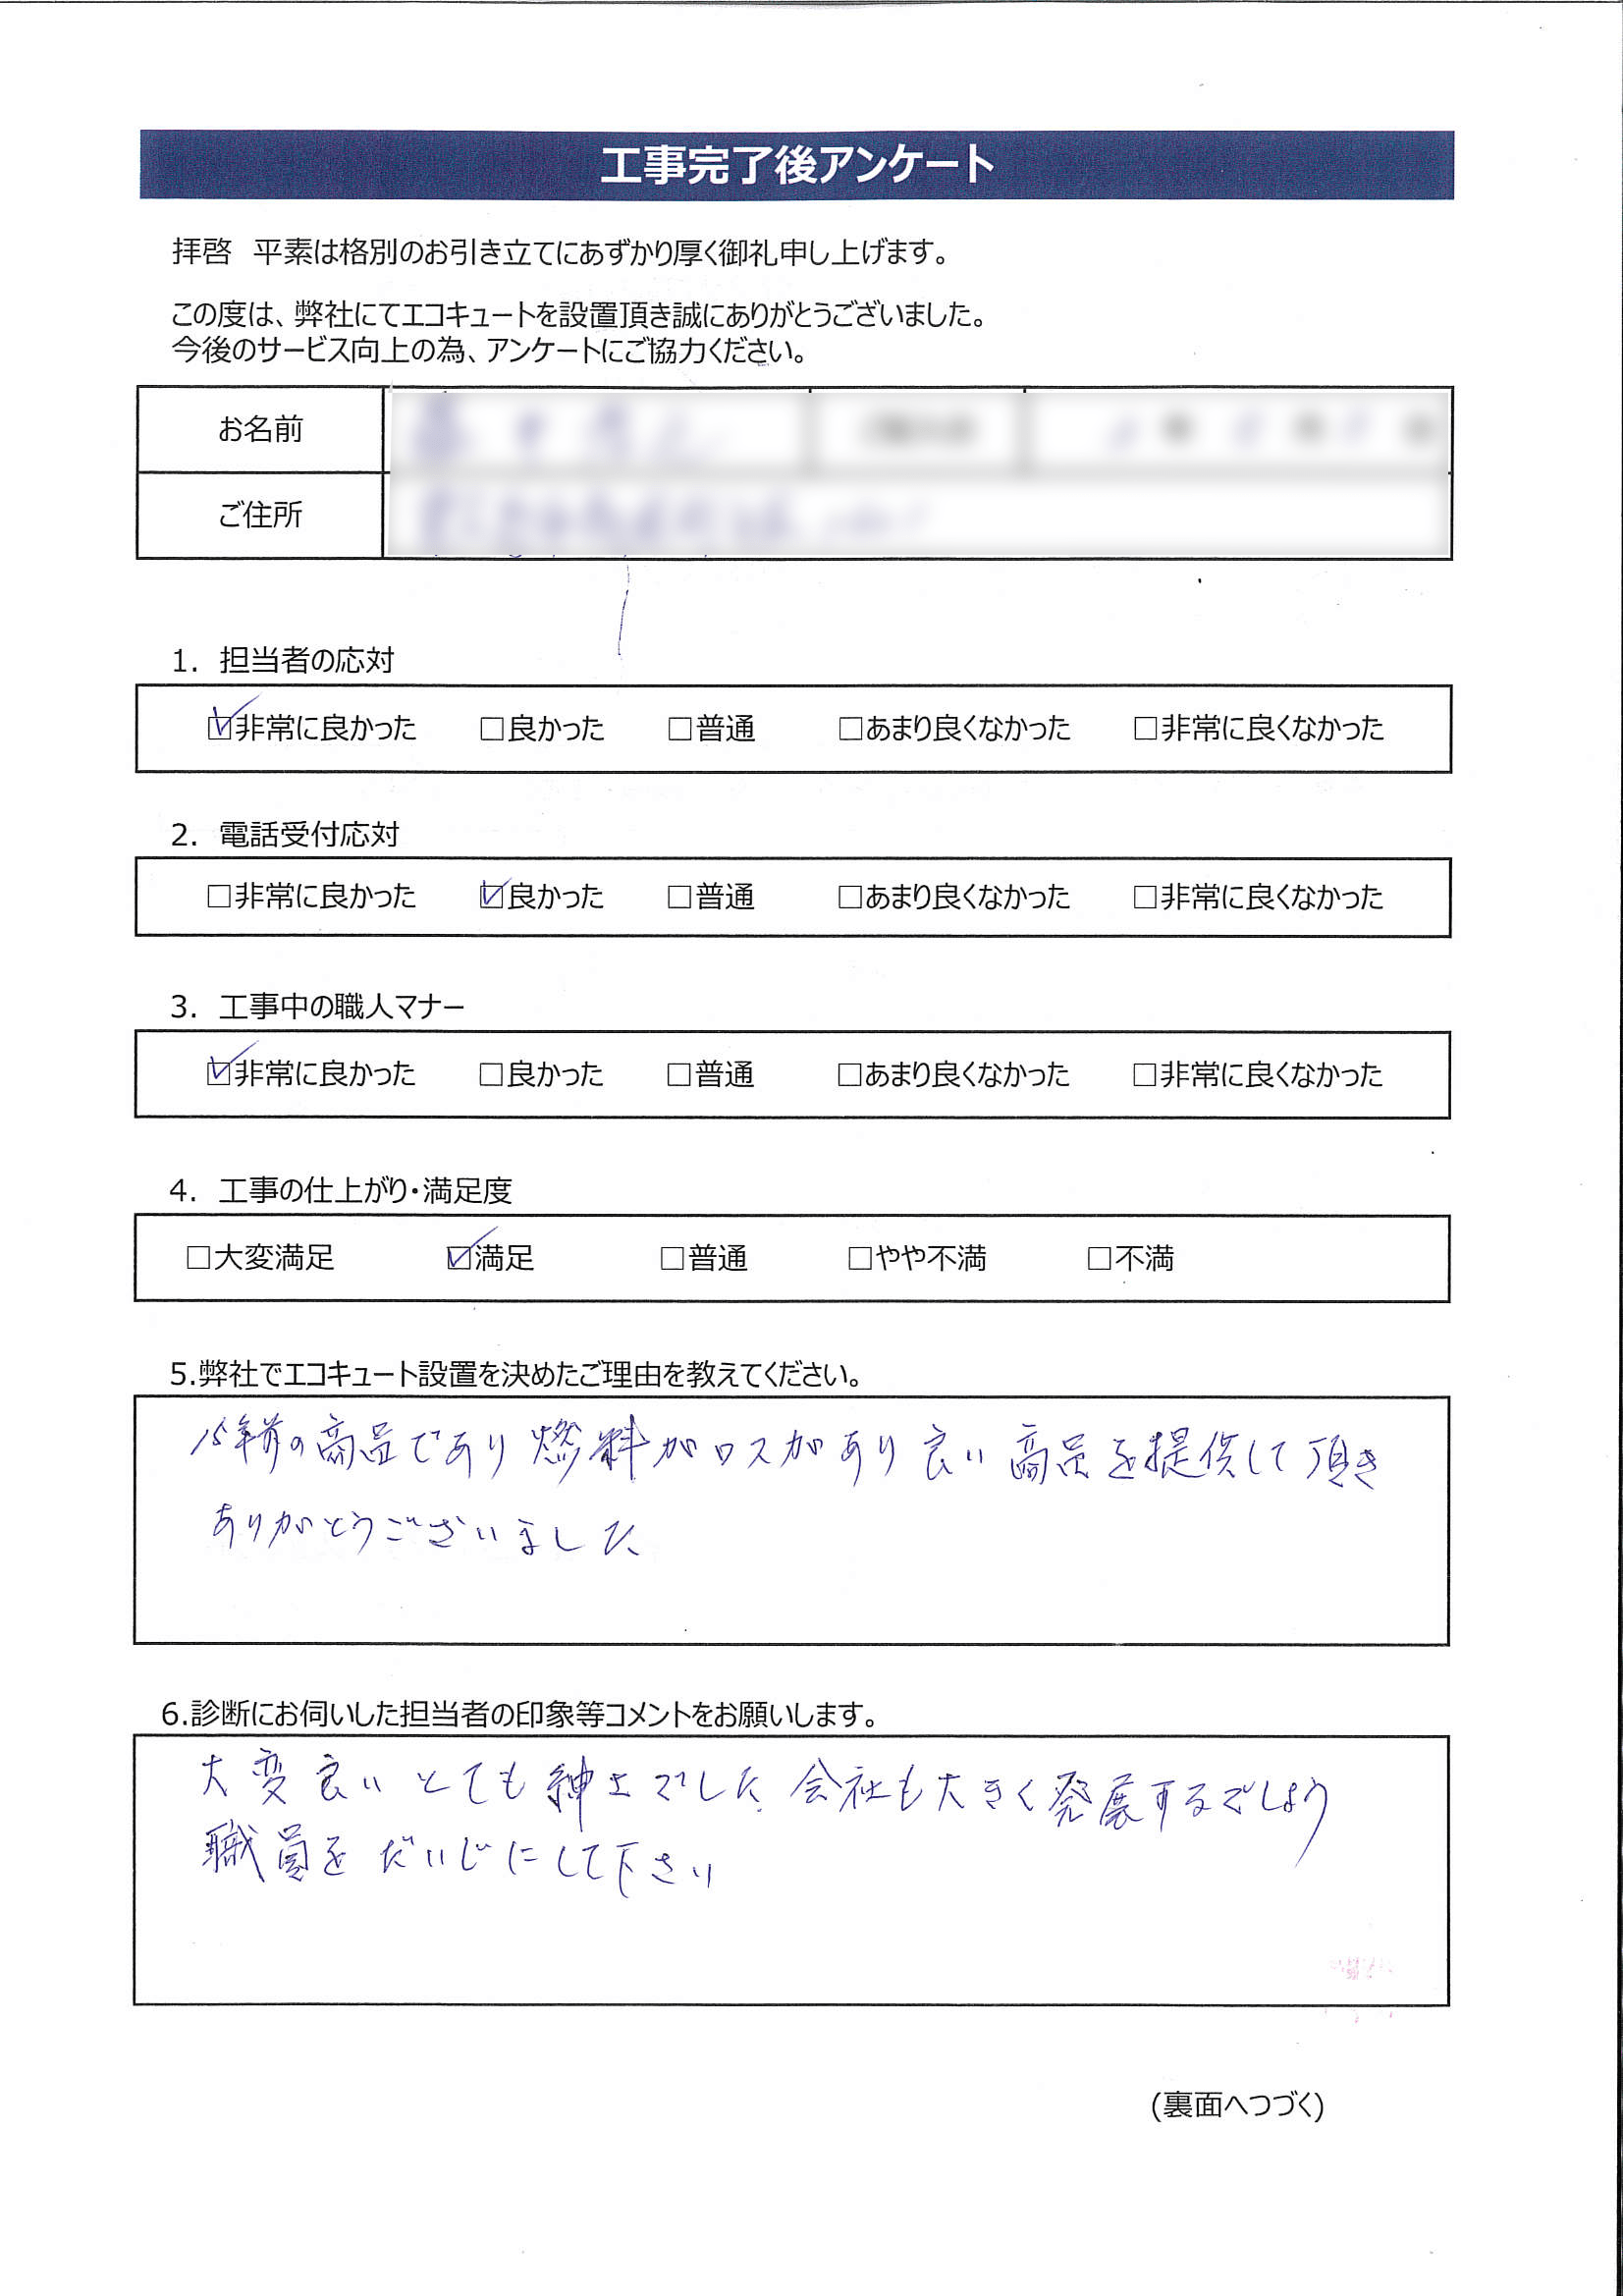 工事完了後アンケート
拝啓　平素は格別のお引き立てにあずかり厚く御礼申し上げます。
この度は、弊社にてエコキュートを設置頂き誠にありがとうございました。
今後のサービス向上の為、アンケートにご協力ください。
お名前
ご住所
1. 担当者の応対
☑非常に良かった □良かった □普通 □あまり良くなかった □非常に良くなかった
2. 電話受付応対
□非常に良かった ☑良かった □普通 □あまり良くなかった □非常に良くなかった
3. 工事中の職人マナー
☑非常に良かった □良かった □普通 □あまり良くなかった □非常に良くなかった
4. 工事の仕上がり・満足度
□大変満足 ☑満足 □普通 □やや不満 □不満
5.弊社でエコキュート設置を決めたご理由を教えてください。
15年前の商品であり燃料がロスがあり良い商品を提供して頂き
ありがとうございました
6.診断にお伺いした担当者の印象等コメントをお願いします。
大変良いとても紳士でした 会社も大きく発展するでしょう
職員をだいじにして下さい
(裏面へつづく)